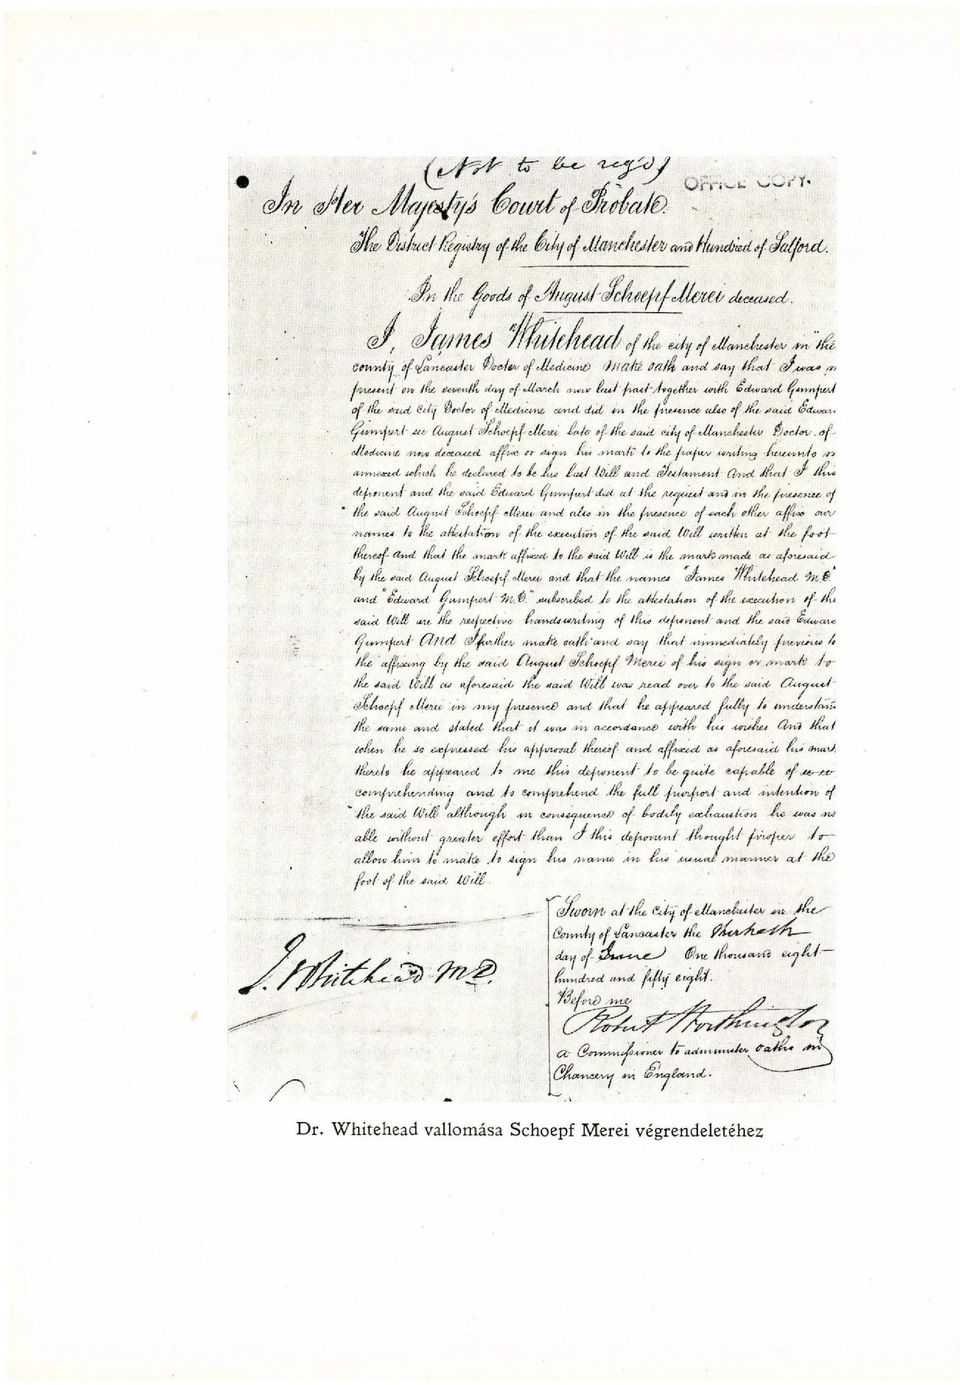 (Not to be reg'd)
OFFICE COPY.
In Her Majesty's Court of Probate.
The District Registry of the City of Manchester and Hundred of Salford.
In the Goods of August Schoepf Merei deceased.
I, James Whitehead of the city of Manchester in the
county of Lancaster Doctor of Medicine make oath and say that I was
present on the seventh day of March now last past together with Edward Gumpert
of the said City Doctor of Medicine and did in the presence also of the said Edward
Gumpert see August Schoepf Merei late of the said city of Manchester Doctor of
Medicine now deceased affix or sign his mark to the paper writing hereunto
annexed which he declared to be his last Will and Testament And that I this
deponent and the said Edward Gumpert did at the request and in the presence of
the said August Schoepf Merei and also in the presence of each other affix our
names to the attestation of the execution of the said Will written at the foot
thereof And that the mark affixed to the said Will is the mark made as aforesaid
by the said August Schoepf Merei and that the names "James Whitehead M.D."
and "Edward Gumpert M.D." subscribed to the attestation of the execution of the
said Will are the respective handswriting of this deponent and the said Edward
Gumpert And I further make oath and say that immediately previous to
the affixing by the said August Schoepf Merei of his sign or mark to
the said Will as aforesaid the said Will was read over to the said August
Schoepf Merei in my presence and that he appeared fully to understand
the same and stated that it was in accordance with his wishes And that
when he so expressed his approval thereof and affixed as aforesaid his mark
thereto he appeared to me this deponent to be quite capable of
comprehending and to comprehend the full purport and intention of
the said Will although in consequence of bodily exhaustion he was
able without greater effort than I this deponent thought proper to
allow him to make to sign his name in his usual manner at the
foot of the said Will.
Sworn at the City of Manchester in the
County of Lancaster the
day of June One thousand eight
hundred and fifty eight.
J. Whitehead M.D.
Before me
Robert Worthington
a Commissioner to administer oaths in
Chancery in England.
Dr. Whitehead vallomása Schoepf Merei végrendeletéhez